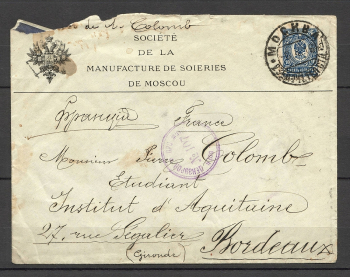 de A. Colomb
SOCIÉTÉ
DE LA
MANUFACTURE DE SOIERIES
DE MOSCOU
МОСКВА
Франція France
Monsieur Pierre Colomb
Etudiant
Institut d'Aquitaine
27, rue Ségalier
(Gironde) Bordeaux